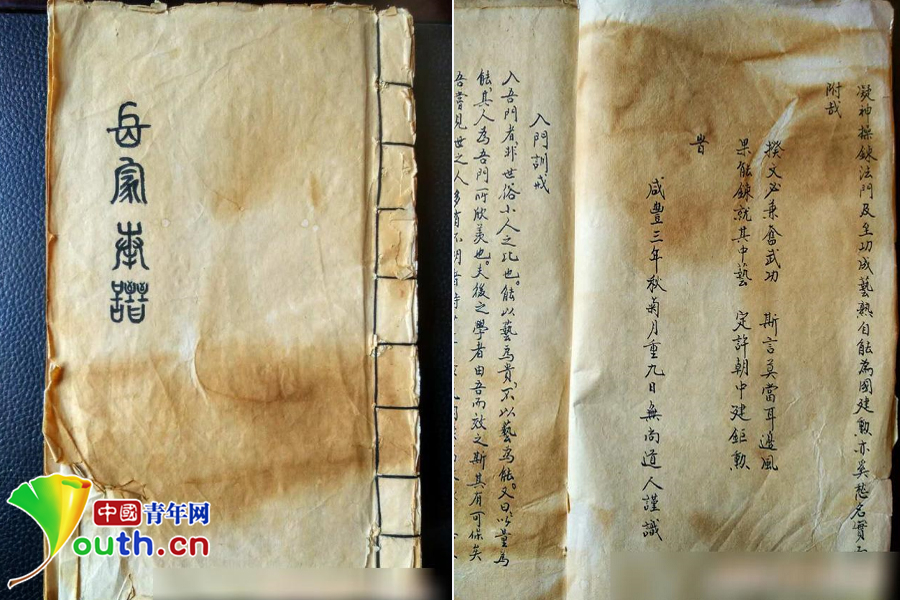 岳家拳譜
凝神操鍊法門及至功成藝熟自能為國建勳亦奚愁名實
附哉
揆文必兼奮武功 斯言莫當耳邊風
果能鍊就其中藝 定許朝中建鉅勳
旹
咸豐三年秋菊月重九日無尚道人謹識
入門訓戒
入吾門者,非世俗小人之比也。能以藝為貴,不以藝為能。又曰以藝為
能,其人為吾門所欣羨也。夫後之學者由吾而效之斯其有可保矣
吾嘗見世之人多有不明者
中國青年网
Youth.cn